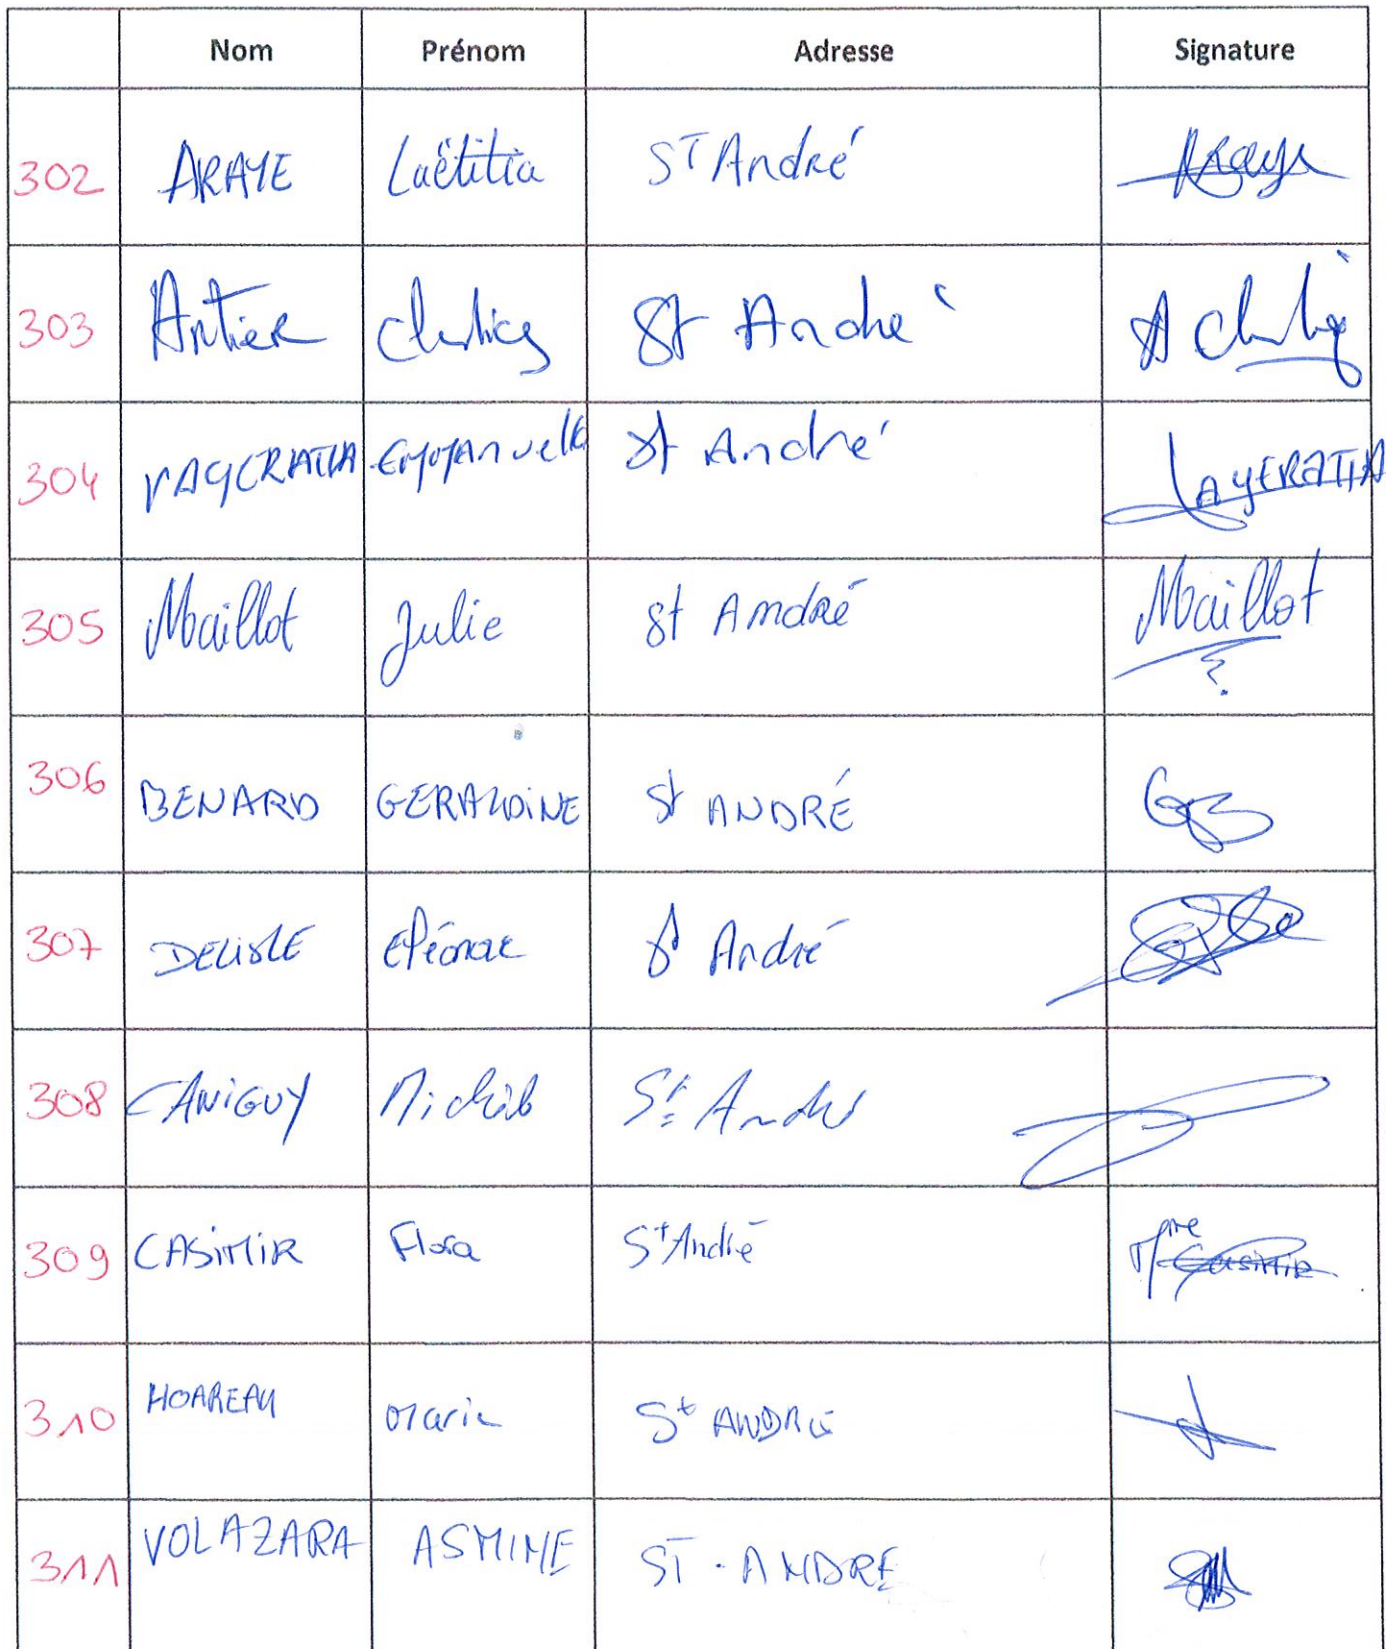 Nom Prénom Adresse Signature
302 ARAYE Laëtitia ST André Araye
303 Antier St André
304 St André
305 Maillot Julie St André Maillot
306 BENARD GERALDINE St ANDRÉ GB
307 DELISLE Eléonore St André
308 CANIGUY St André
309 CASIMIR Flora St André Mme CASIMIR
310 HOAREAU Marie St ANDRÉ
311 VOLAZARA ASMINE ST-ANDRE